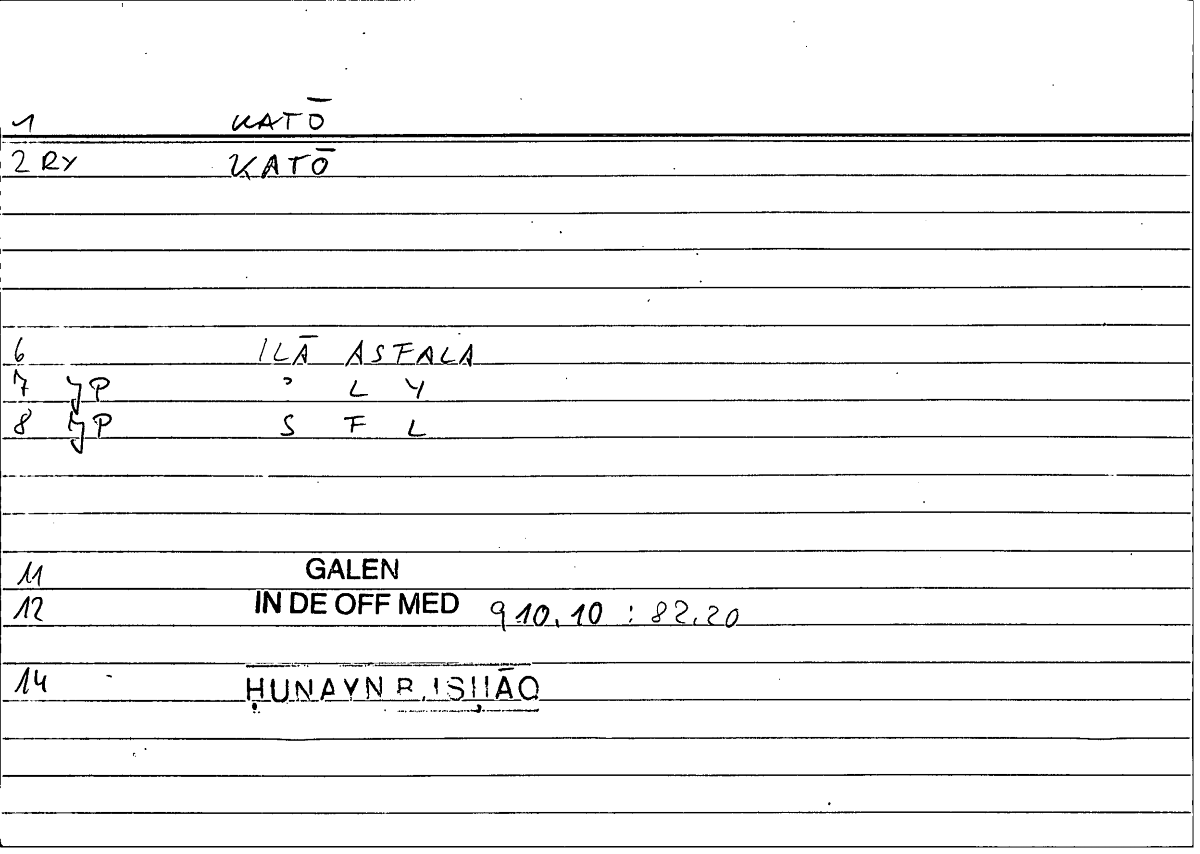 1 KATŌ
2 RY KATŌ
6 ILĀ ASFALA
7 JP ʾ L Y
8 JP S F L
11 GALEN
12 IN DE OFF MED 910.10 : 82.20
14 ḤUNAYN B. ISḤĀQ